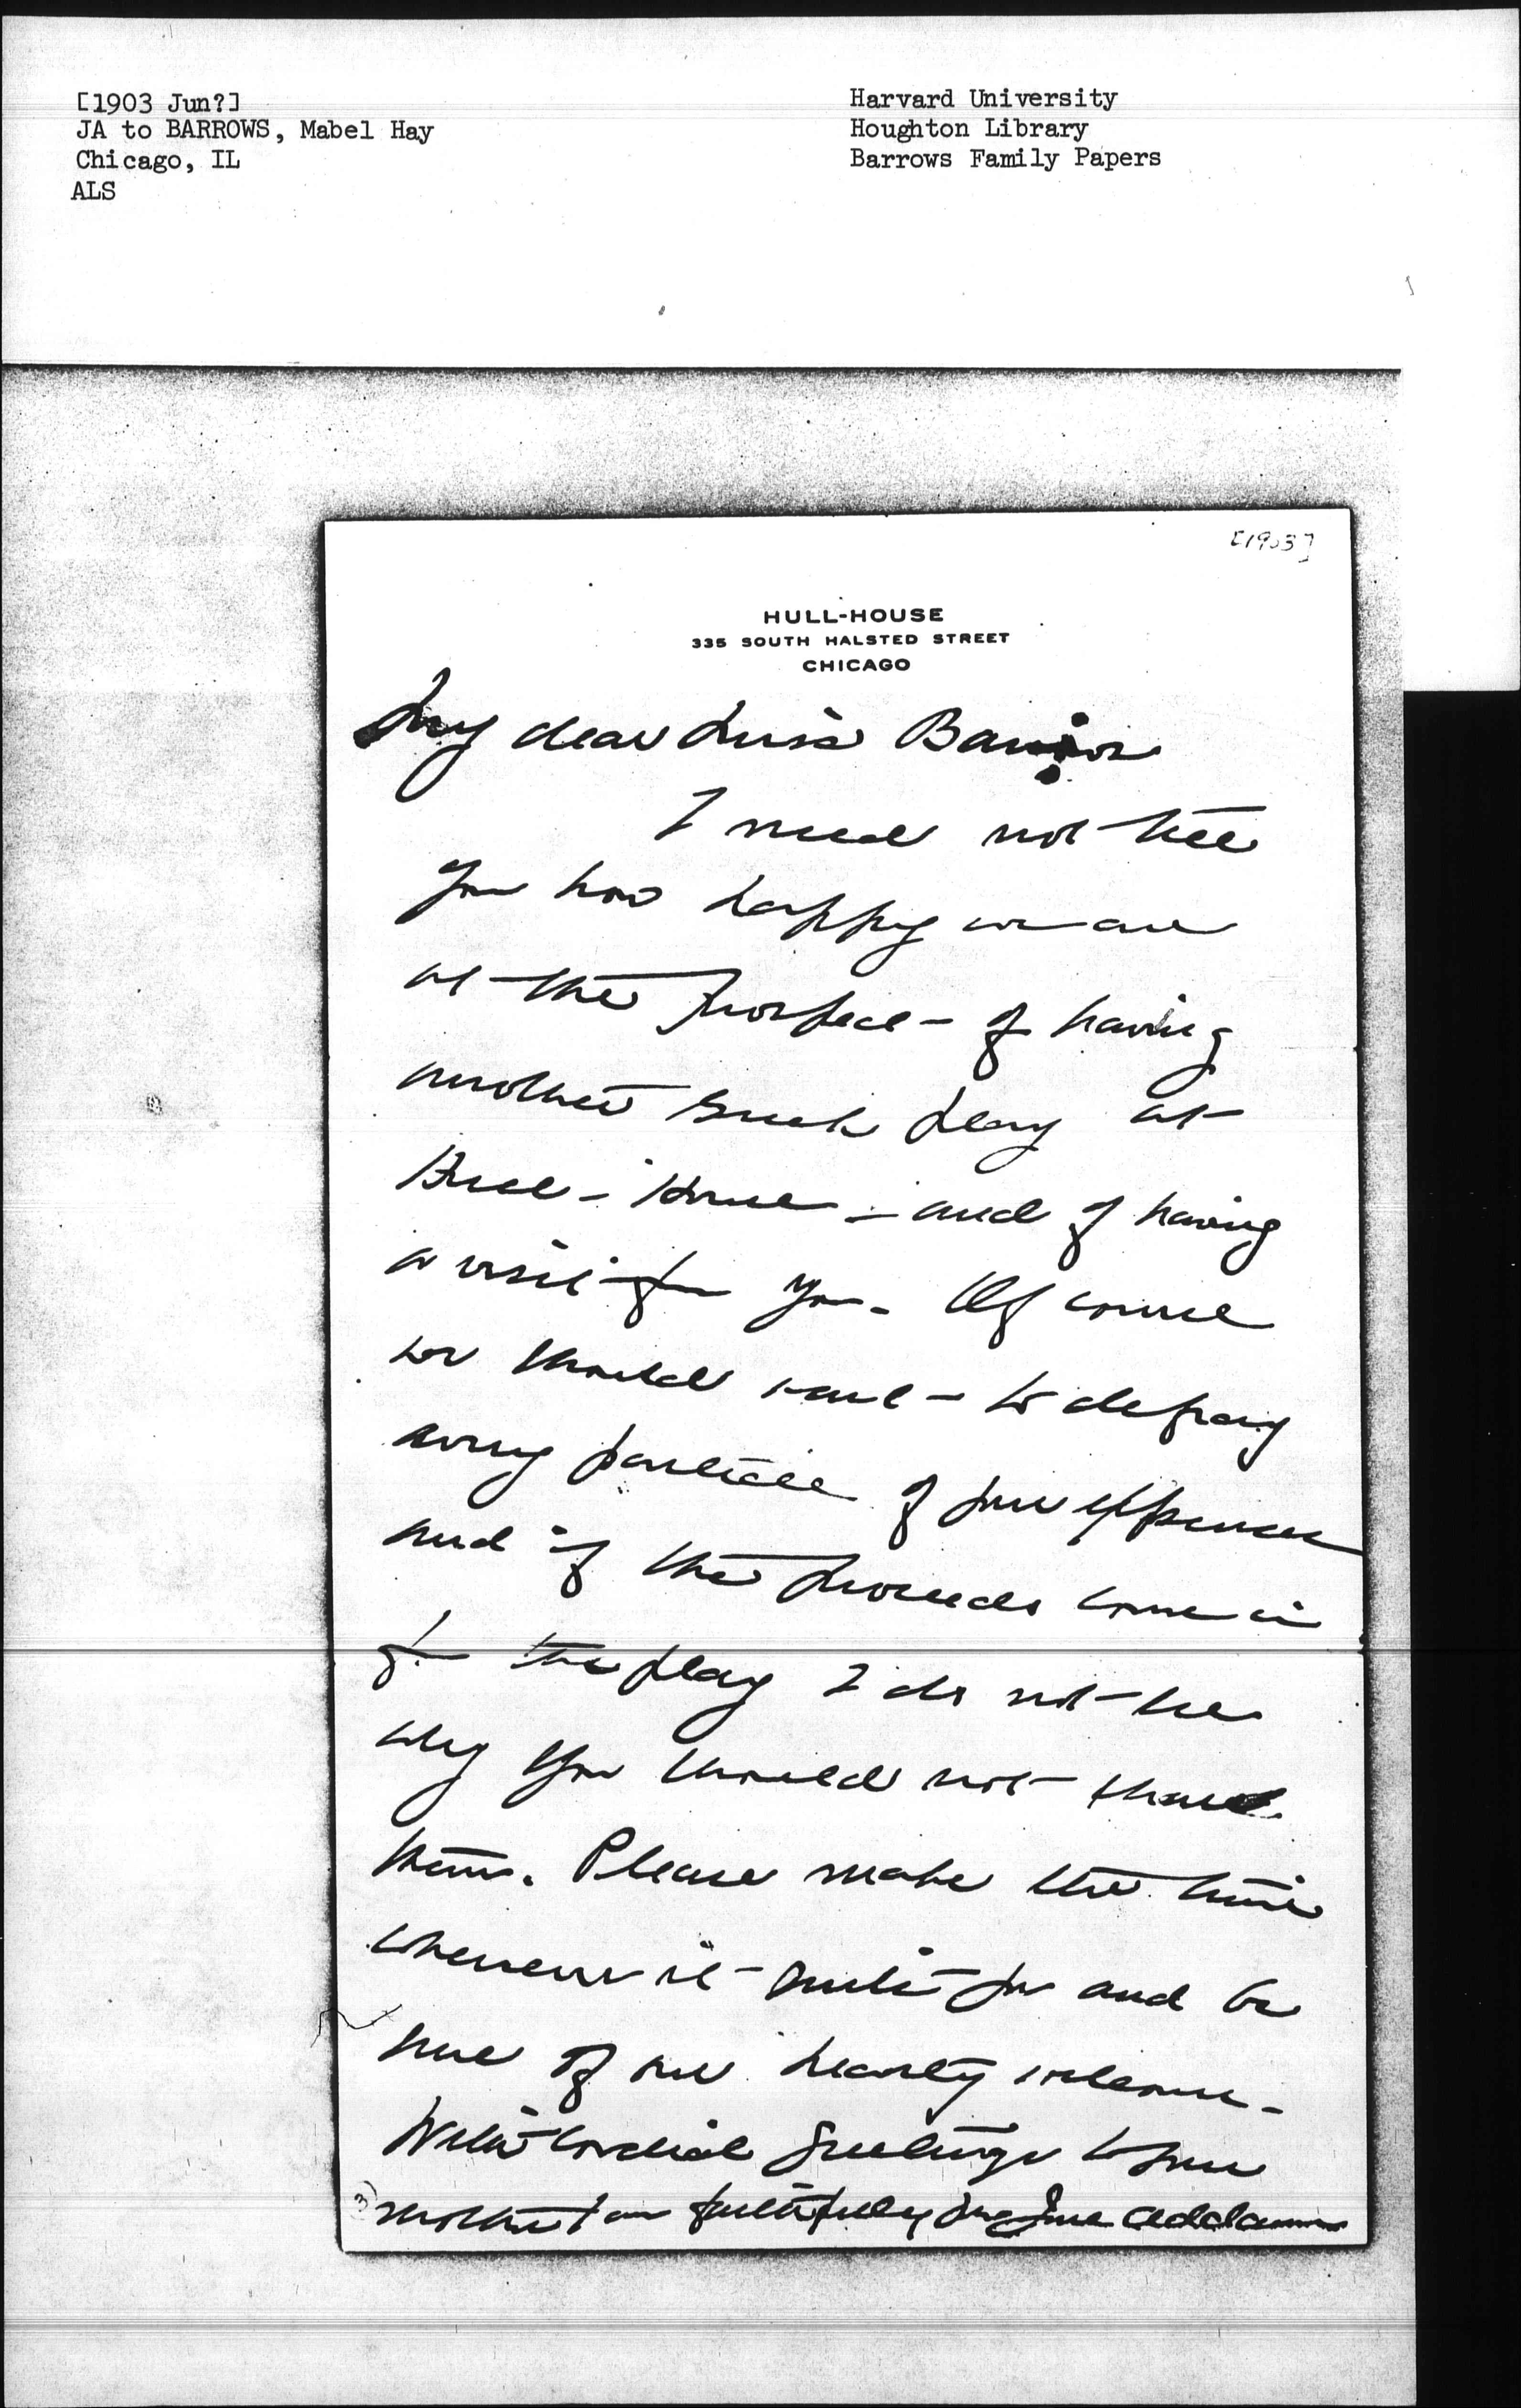 [1903 Jun?]
JA to BARROWS, Mabel Hay
Chicago, IL
ALS
Harvard University
Houghton Library
Barrows Family Papers
[1903]
HULL-HOUSE
335 SOUTH HALSTED STREET
CHICAGO
My dear Miss Barrows
I need not tell
you how happy we are
at the prospect of having
another Greek play at
Hull-House - and of having
a visit from you. Of course
we should want to defray
every particle of your expenses
and if the proceeds come in
from the play I do not see
why you should not share
them. Please make the time
whenever it suits you and be
sure of our hearty welcome.
With cordial greetings to your
mother I am faithfully yrs Jane Addams
3)